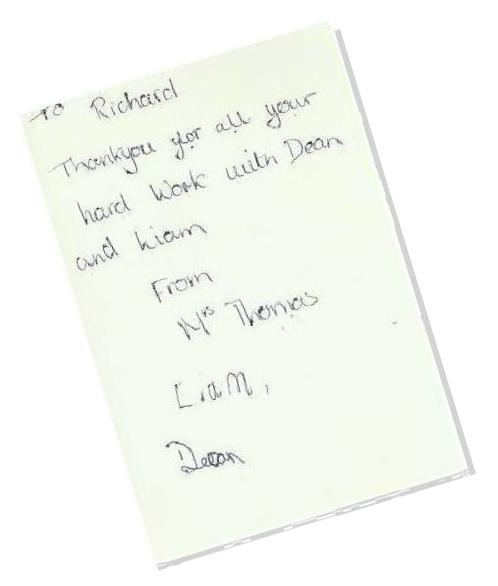 To Richard
Thankyou for all your
hard work with Dean
and Liam
From
Mrs Thomas
LiaM,
Dean